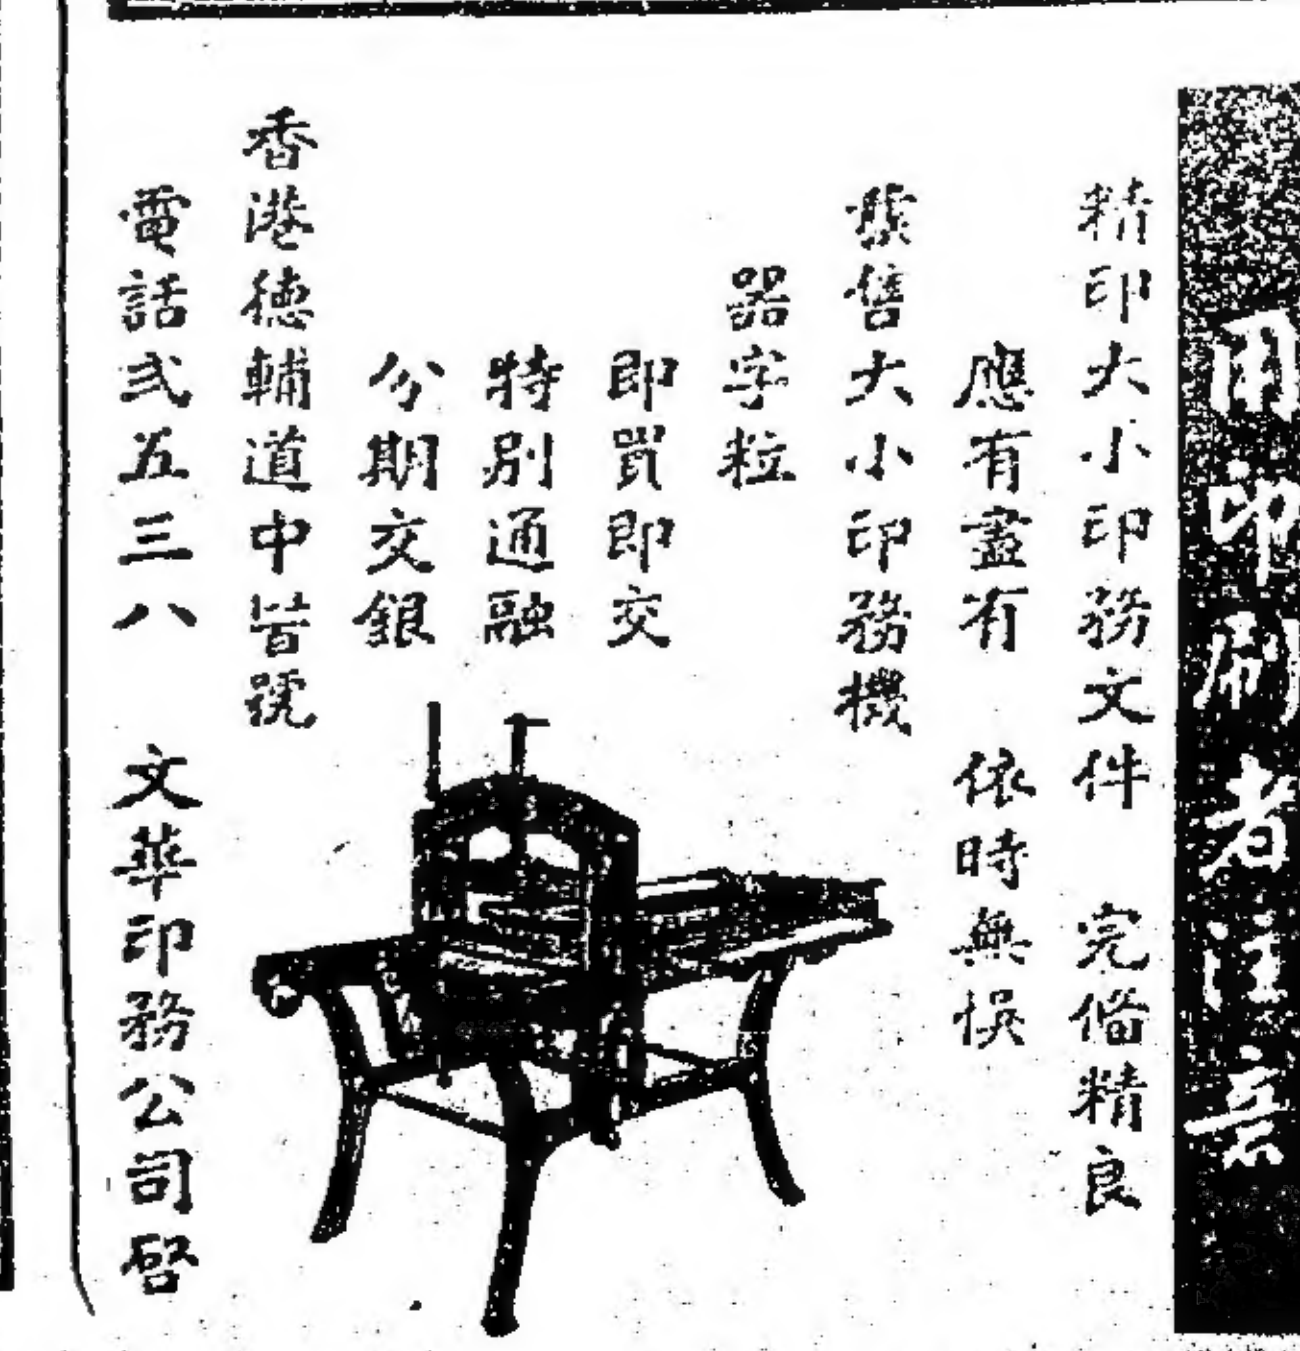 用印刷者注意
精印大小印務文件 完備精良
應有盡有 依時無悞
發售大小印務機
器字粒
即買即交
特別通融
分期交銀
香港德輔道中號
電話弍五三八 文華印務公司啓